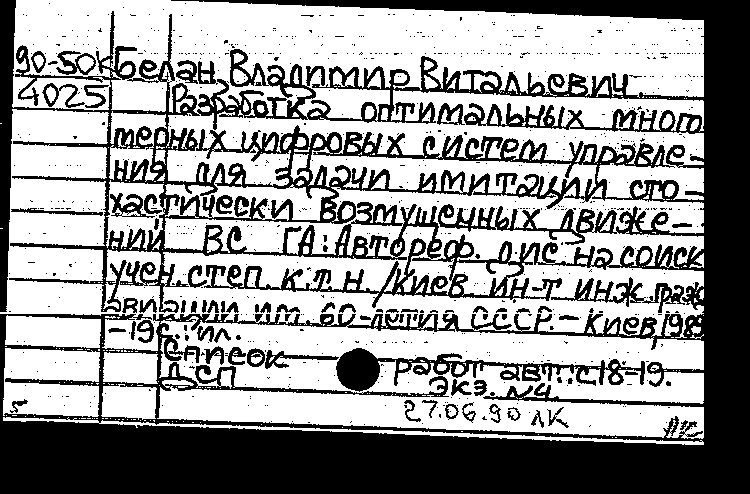 90-50к Белан, Владимир Витальевич.
4025 Разработка оптимальных много
мерных цифровых систем управле-
ния для задачи имитации сто-
хастически возмущенных движе-
ний ВС ГА: Автореф. дис. на соиск
учен. степ. к.т.н. / Киев. ин-т инж. граж
авиации им. 60-летия СССР. - Киев, 1989
- 19с.: ил.
Список работ авт.: с 18-19.
ДСП Экз. №4.
27.06.90 ЛК